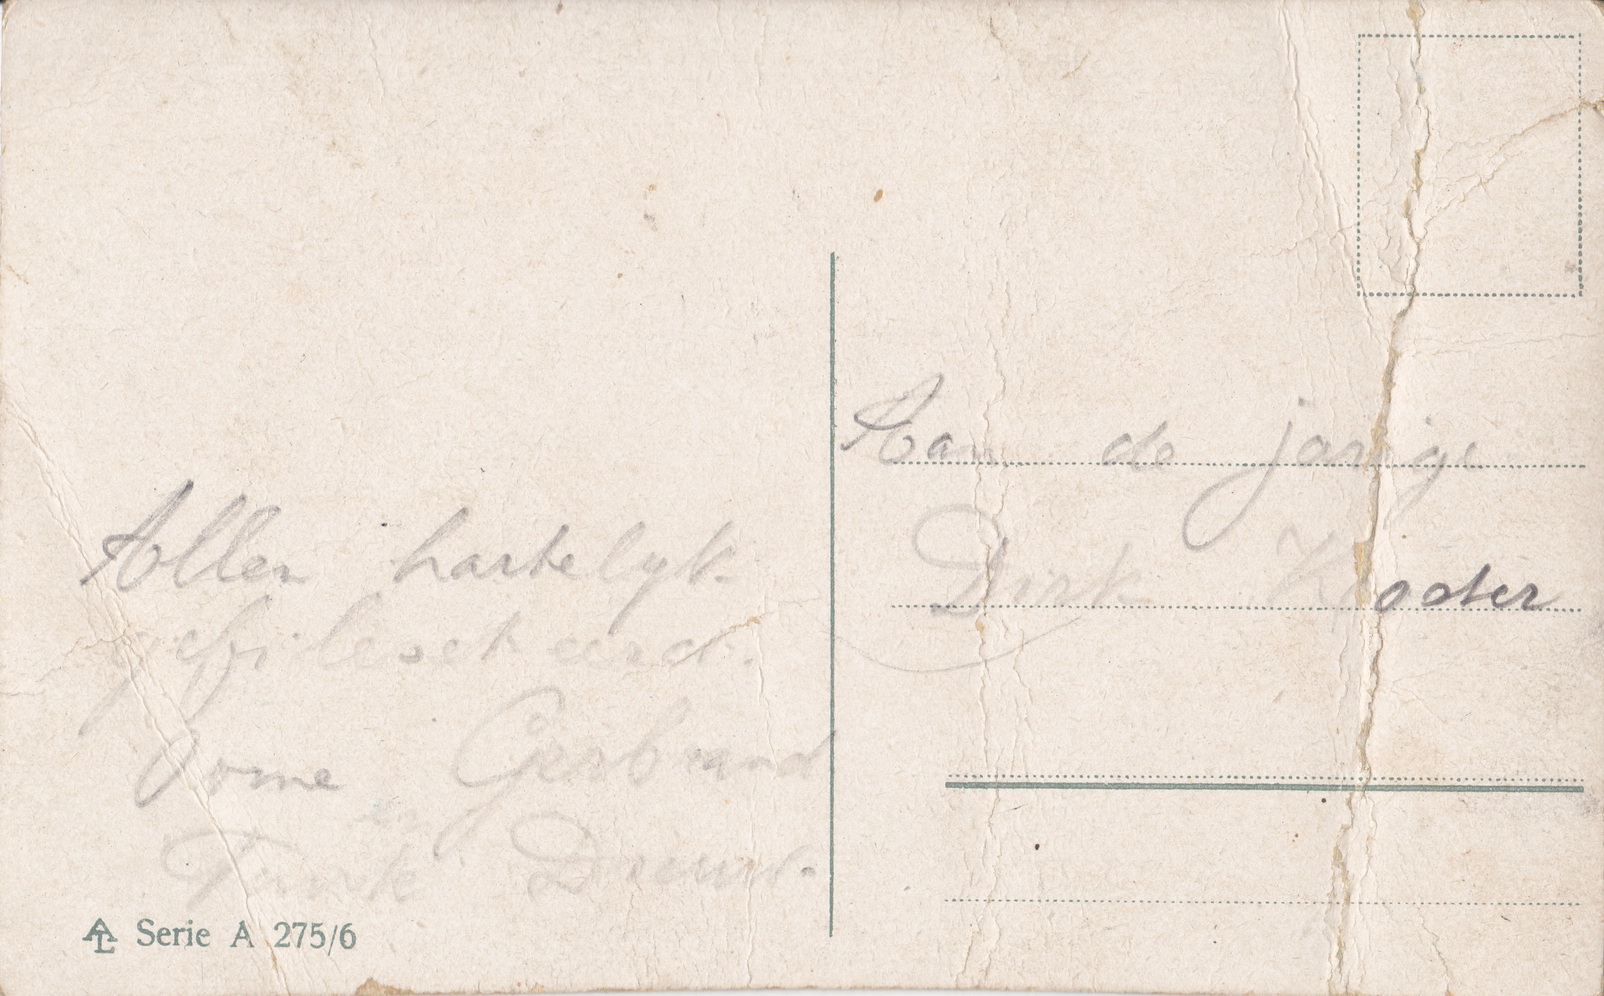 Allen hartelyk
gefileseteerd.
Oome Gerbrand
en
Tante Dieuw.
Serie A 275/6
Aan de jarige
Dirk Kooter